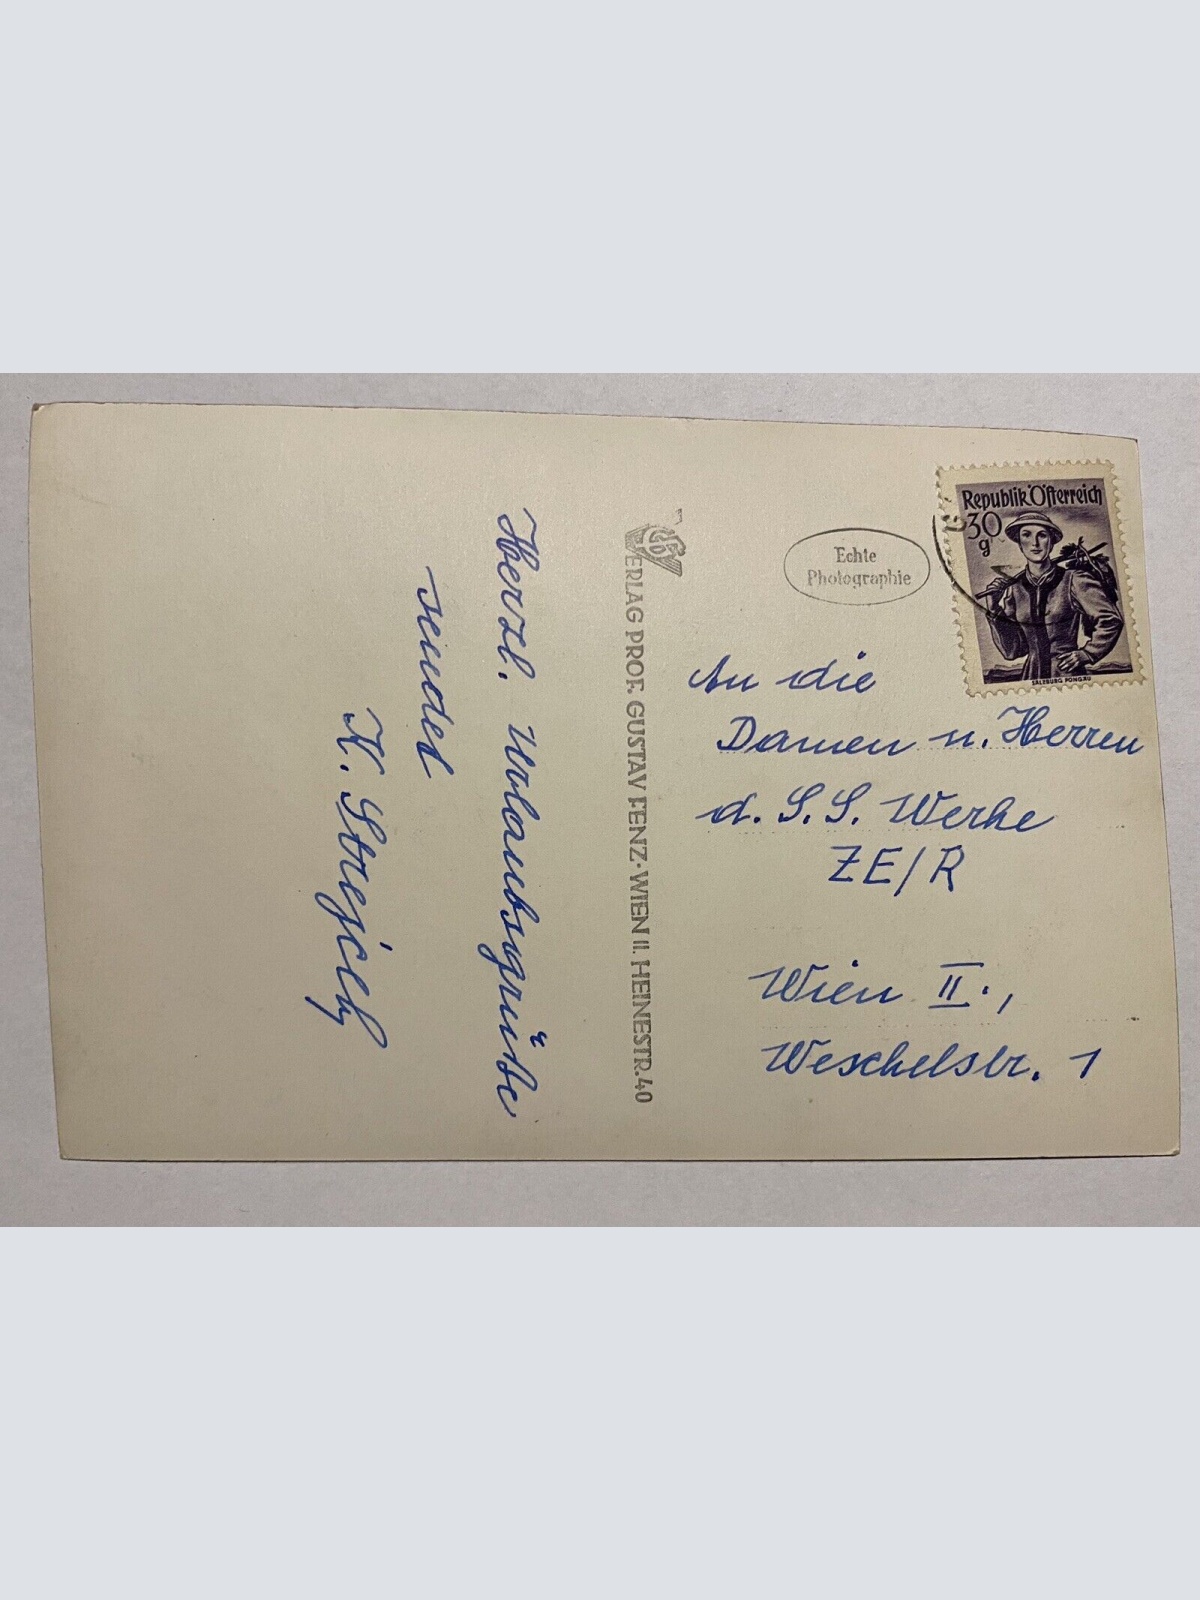 Herzl. Urlaubsgrüße
sendet
K.
VERLAG PROF. GUSTAV FENZ · WIEN II. HEINESTR. 40
Echte
Photographie
Republik Österreich
30
g
SALZBURG PONGAU
An die
Damen u. Herren
d. S. S. Werke
ZE/R
Wien II.,
Weschelstr. 1